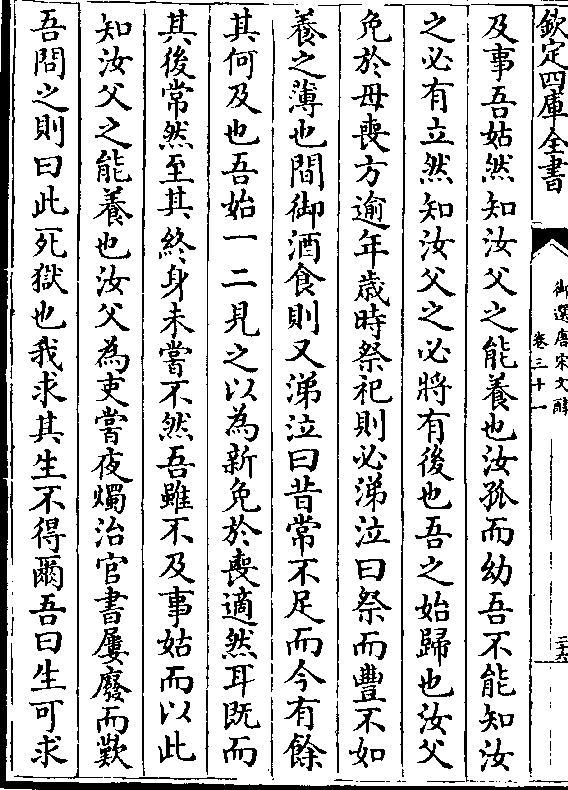 欽定四庫全書
御選唐宋文醇
卷三十一
及事吾姑然知汝父之能養也汝孤而幼吾不能知汝
之必有立然知汝父之必將有後也吾之始歸也汝父
免於母喪方逾年歳時祭祀則必涕泣曰祭而豐不如
養之薄也間御酒食則又涕泣曰昔常不足而今有餘
其何及也吾始一二見之以為新免於喪適然耳既而
其後常然至其終身未嘗不然吾雖不及事姑而以此
知汝父之能養也汝父為吏嘗夜燭治官書屢廢而歎
吾問之則曰此死獄也我求其生不得爾吾曰生可求